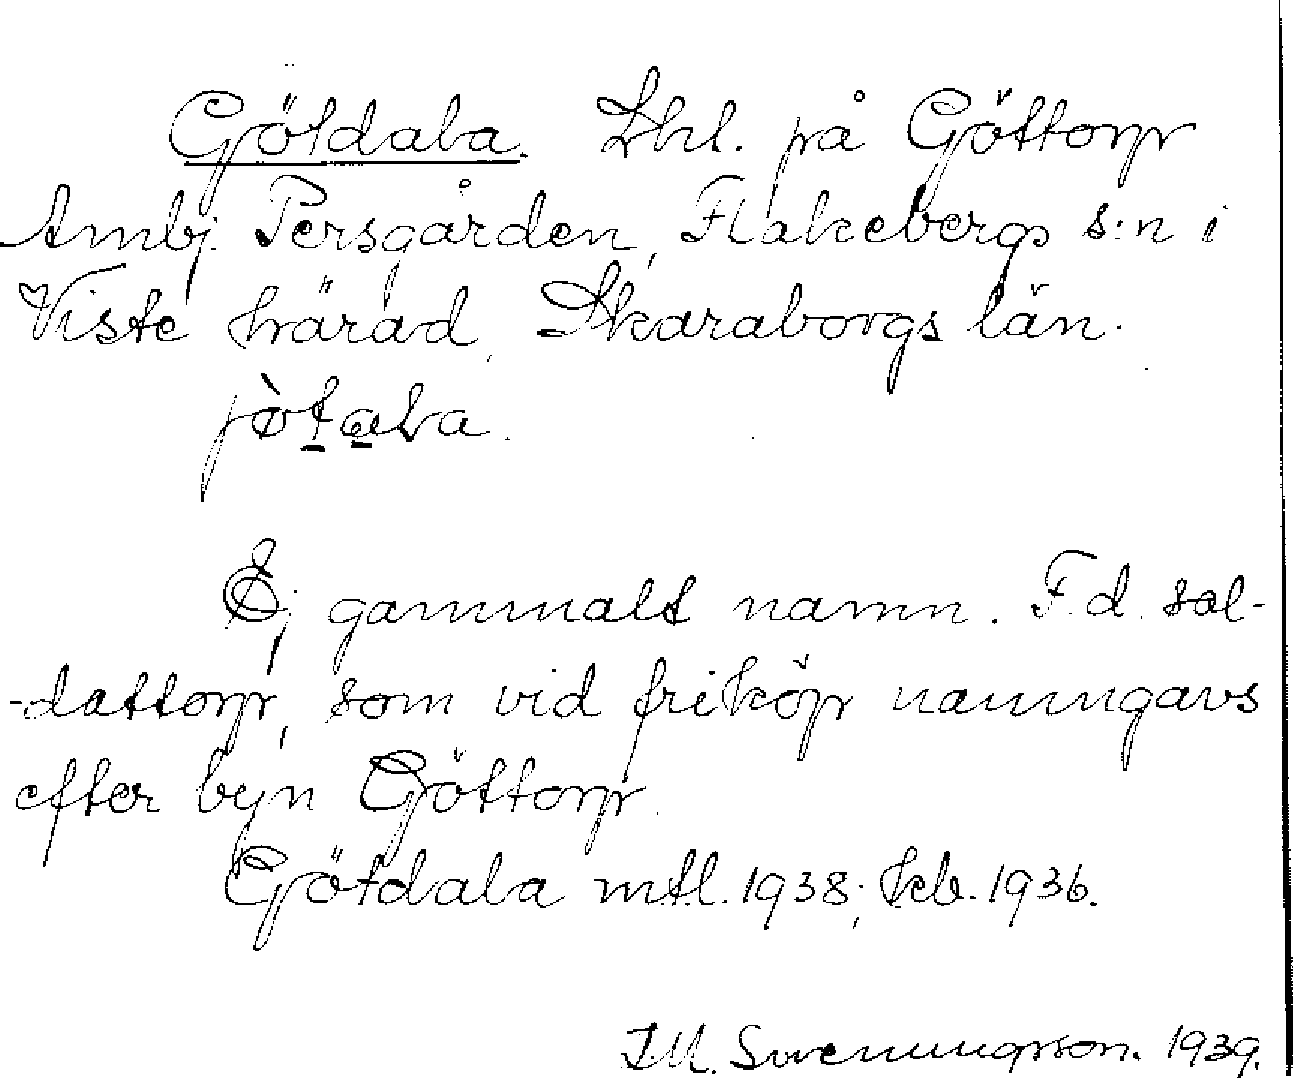 Götdala. Lhl. på Göttorp
Ambj. Persgården, Flakebergs s:n i
Viste härad, Skaraborgs län.
jòtala.
Ej gammalt namn. F.d. sol-
-dattorp, som vid friköp namngavs
efter byn Göttorp.
Götdala mtl. 1938; kb. 1936.
Svenungsson. 1939.